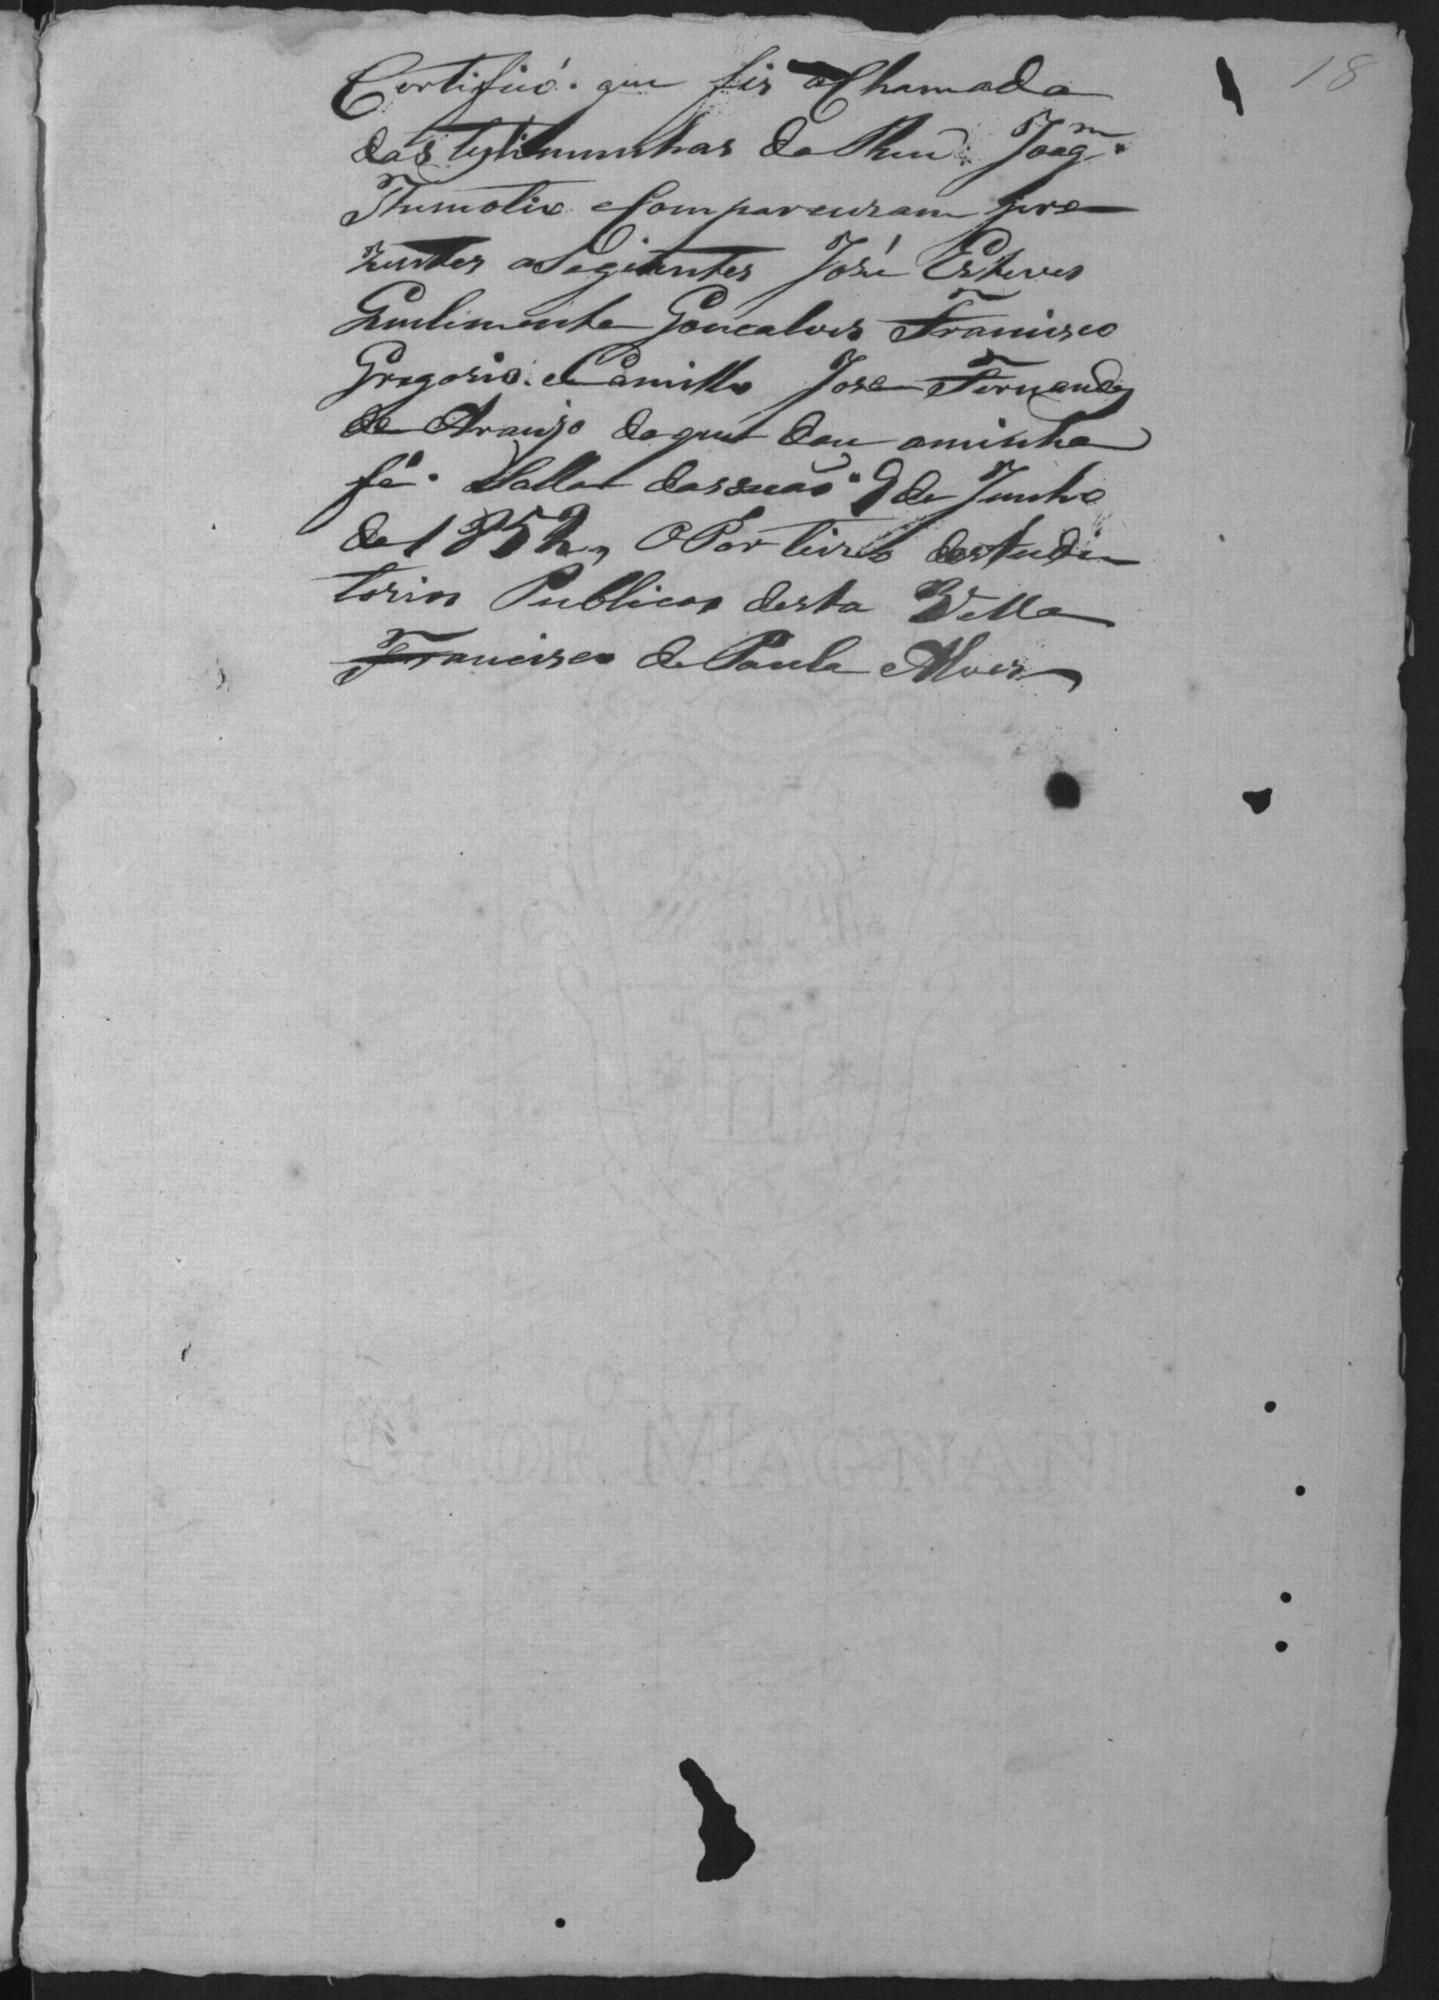 18
Certifico. que fis a Chamada
das testimunhas do Reu Joaqm.
Thimotio e Compareceram pre
zentes as Segintes José Esteves
Gonçalves Francisco
Gregorio. e Camillo José Fernandes
de Araujo do que dou aminha
fé. Salla 9 de Junho
de 1852, O Porteiro
torios Publicos desta Villa
Francisco de Paula Alves